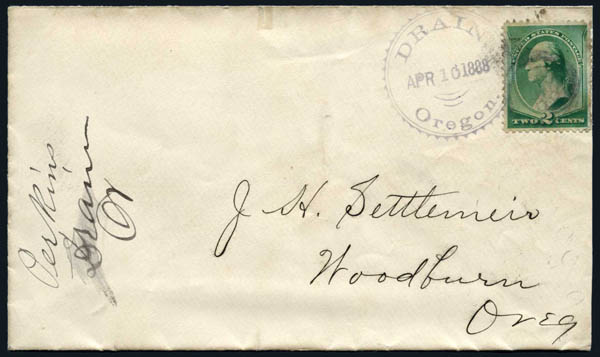 DRAIN
APR 10 1888
Oregon.
UNITED STATES POSTAGE
TWO 2 CENTS
J. H. Settlemeir
Woodburn
Oreg
Perkins
Drain
Or